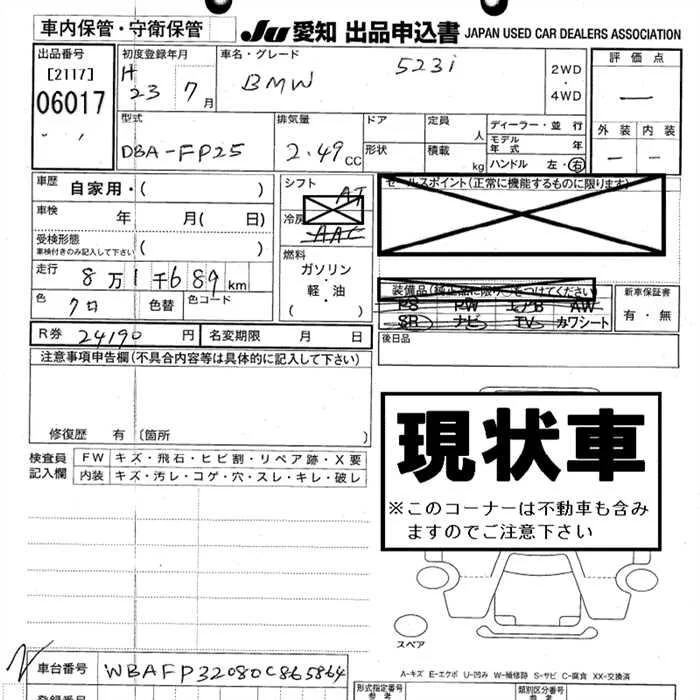 車内保管・守衛保管
Ju 愛知 出品申込書 JAPAN USED CAR DEALERS ASSOCIATION
出品番号
[2117]
06017
初度登録年月
H 23 7月
車名・グレード
BMW 523i
2WD
・
4WD
評価点
—
外装 内装
— —
型式
DBA-FP25
排気量
2.49 CC
ドア
形状
定員 人
積載 kg
ディーラー・並行
モデル年式 年
ハンドル 左・右
車歴 自家用・( )
車検 年 月( 日)
受検形態
車検付きのみ記入して下さい ( )
走行 8万1千689km
色 クロ 色替 色コード
シフト AT
冷房 AAC
燃料
ガソリン
・
軽・油
( )
セールスポイント(正常に機能するものに限ります)
装備品(純正品に限り○をつけてください)
PS PW エアB AW
SR ナビ TV カワシート
新車保証書
有・無
R券 24190円 名変期限 月 日
後日品
注意事項申告欄(不具合内容等は具体的に記入して下さい)
修復歴 有 〔箇所 )
現状車
※このコーナーは不動車も含み
ますのでご注意下さい
検査員
記入欄
FW キズ・飛石・ヒビ割・リペア跡・X要
内装 キズ・汚レ・コゲ・穴・スレ・キレ・破レ
スペア
A-キズ E-エクボ U-凹み W-補修跡 S-サビ C-腐食 XX-交換済
車台番号 WBAFP32080C865864
登録番号
形式指定番号
参考
類別区分番号
参考